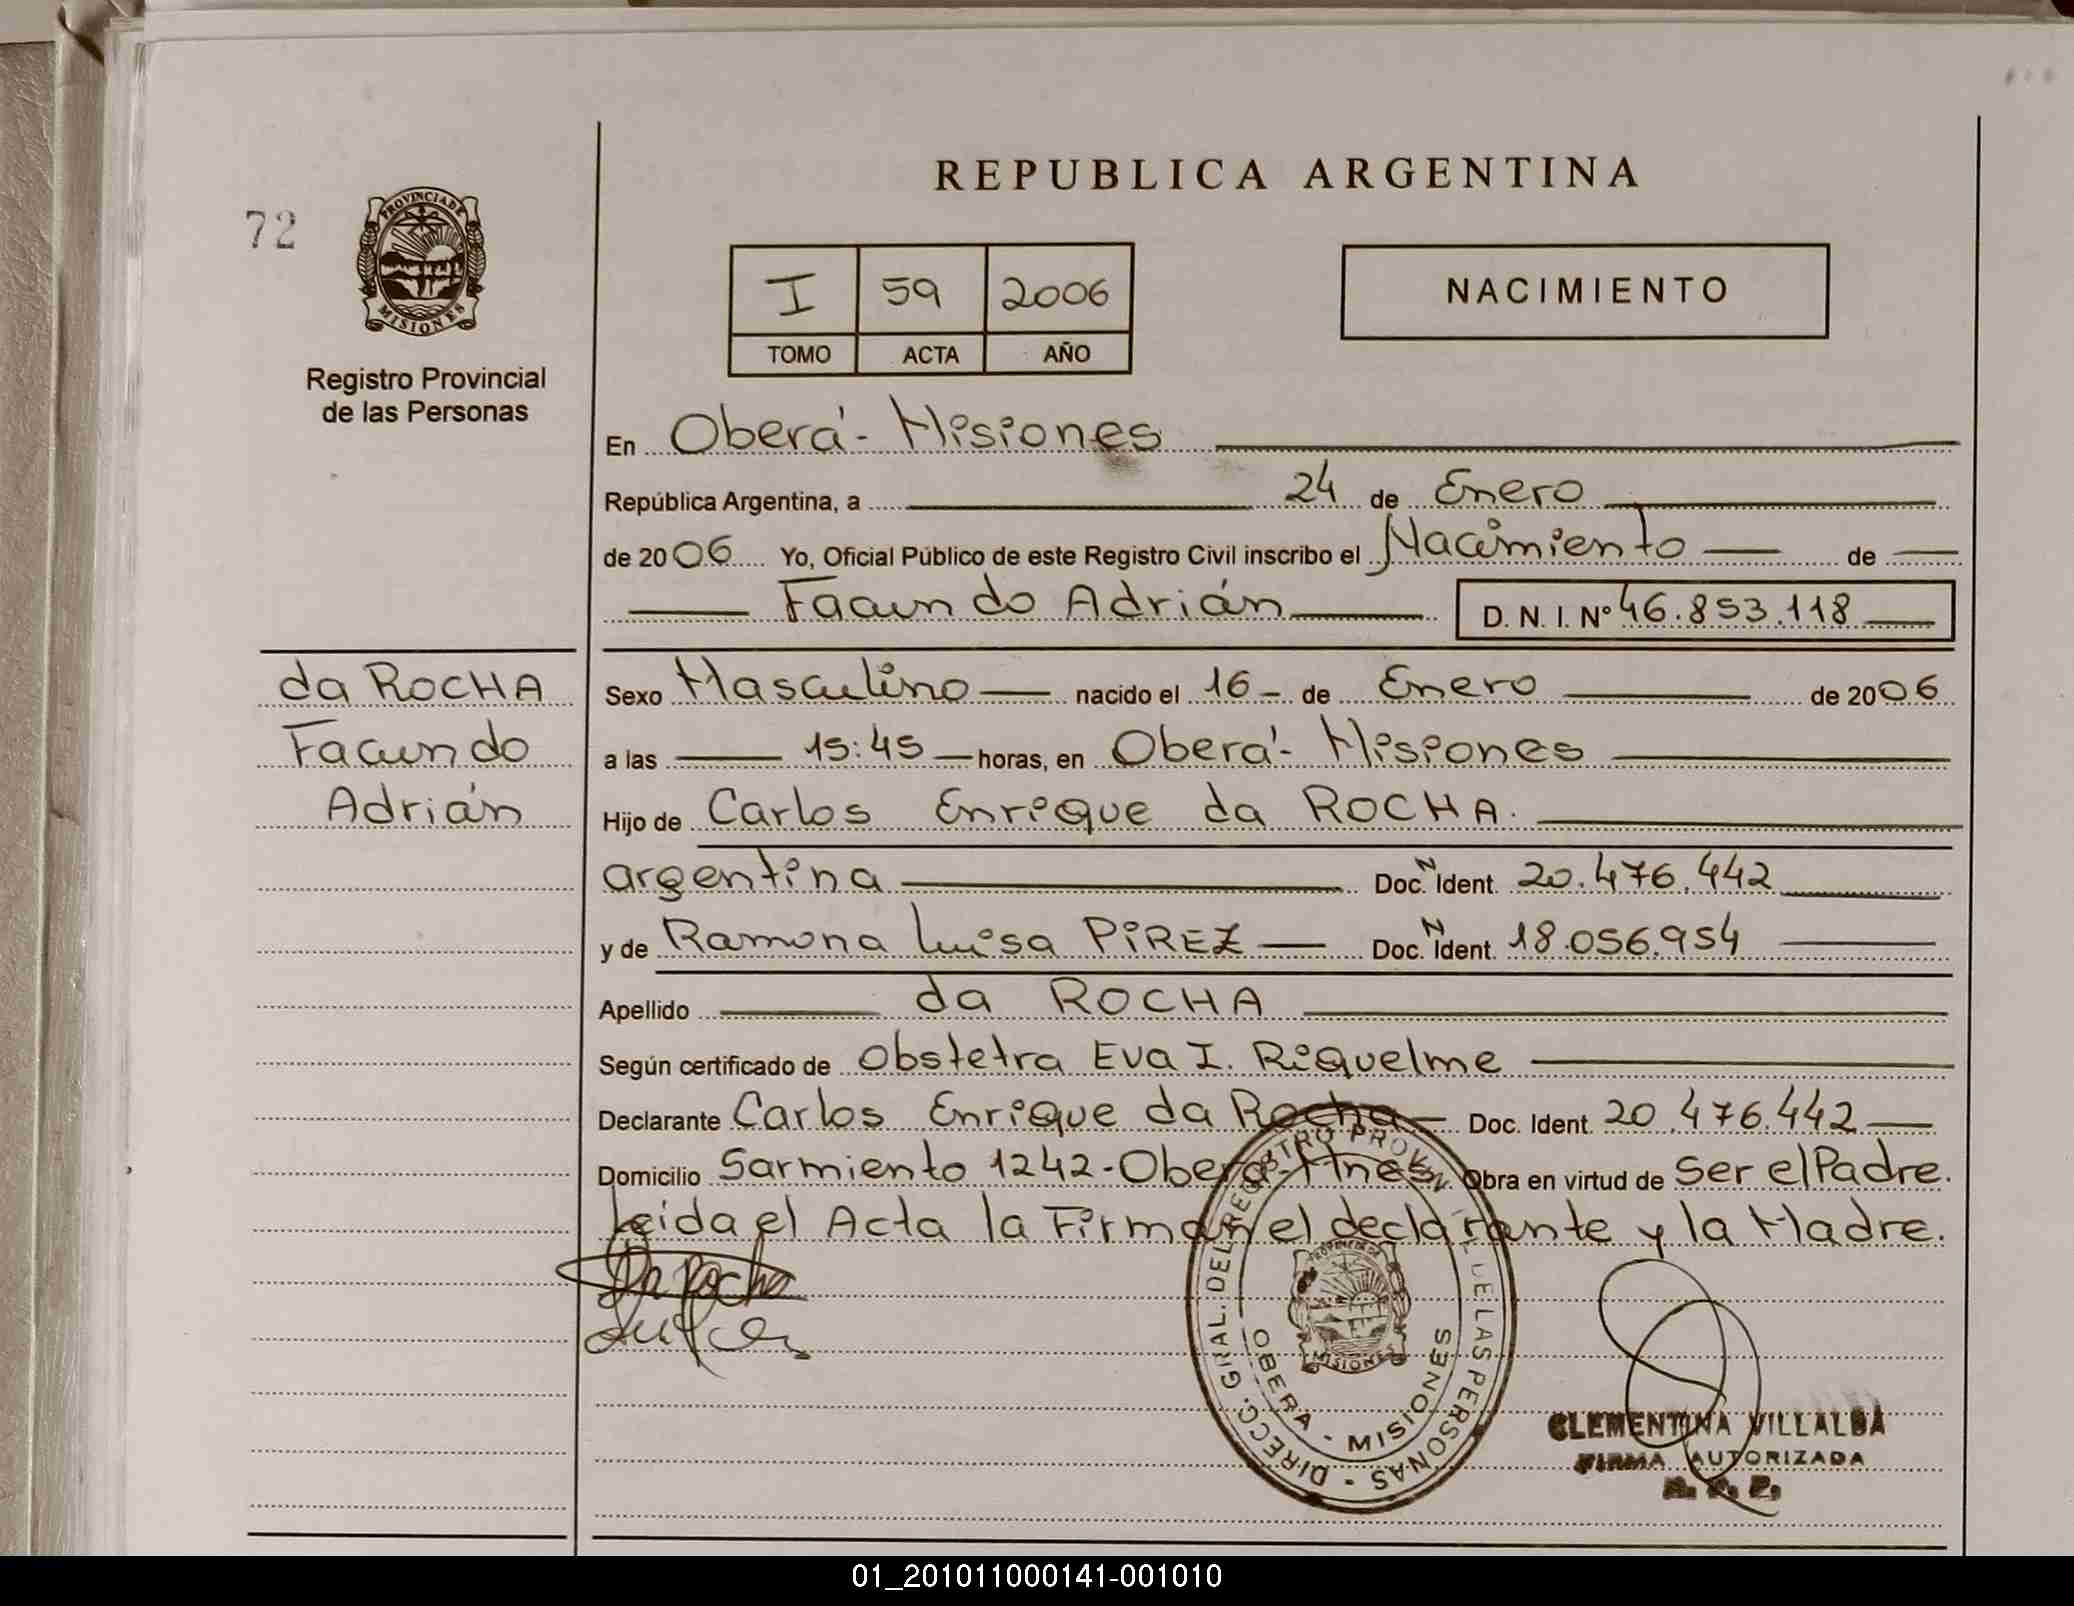 REPUBLICA ARGENTINA
72
PROVINCIA DE
MISIONES
Registro Provincial
de las Personas
I 59 2006
TOMO ACTA AÑO
NACIMIENTO
En Oberá - Misiones
República Argentina, a 24 de Enero
de 2006 Yo, Oficial Público de este Registro Civil inscribo el Nacimiento de
Facundo Adrián D. N. I. Nº 46.853.118
da ROCHA
Facundo
Adrián
Sexo Masculino nacido el 16 - de Enero de 2006
a las 15:45 horas, en Oberá - Misiones
Hijo de Carlos Enrique da ROCHA.
argentina Doc. N Ident. 20.476.442
y de Ramona Luisa PIREZ Doc. N Ident. 18.056.954
Apellido da ROCHA
Según certificado de Obstetra Eva I. Riquelme
Declarante Carlos Enrique da Rocha Doc. Ident. 20.476.442
Domicilio Sarmiento 1242 - Oberá - Mnes. Obra en virtud de Ser el Padre.
Leida el Acta la Firman el declarante y la Madre.
Da Rocha
DIRECC. GRAL. DEL REGISTRO PROVIN DE LAS PERSONAS
PROVINCIA DE
MISIONES
OBERA - MISIONES
CLEMENTINA VILLALBA
FIRMA AUTORIZADA
01_201011000141-001010